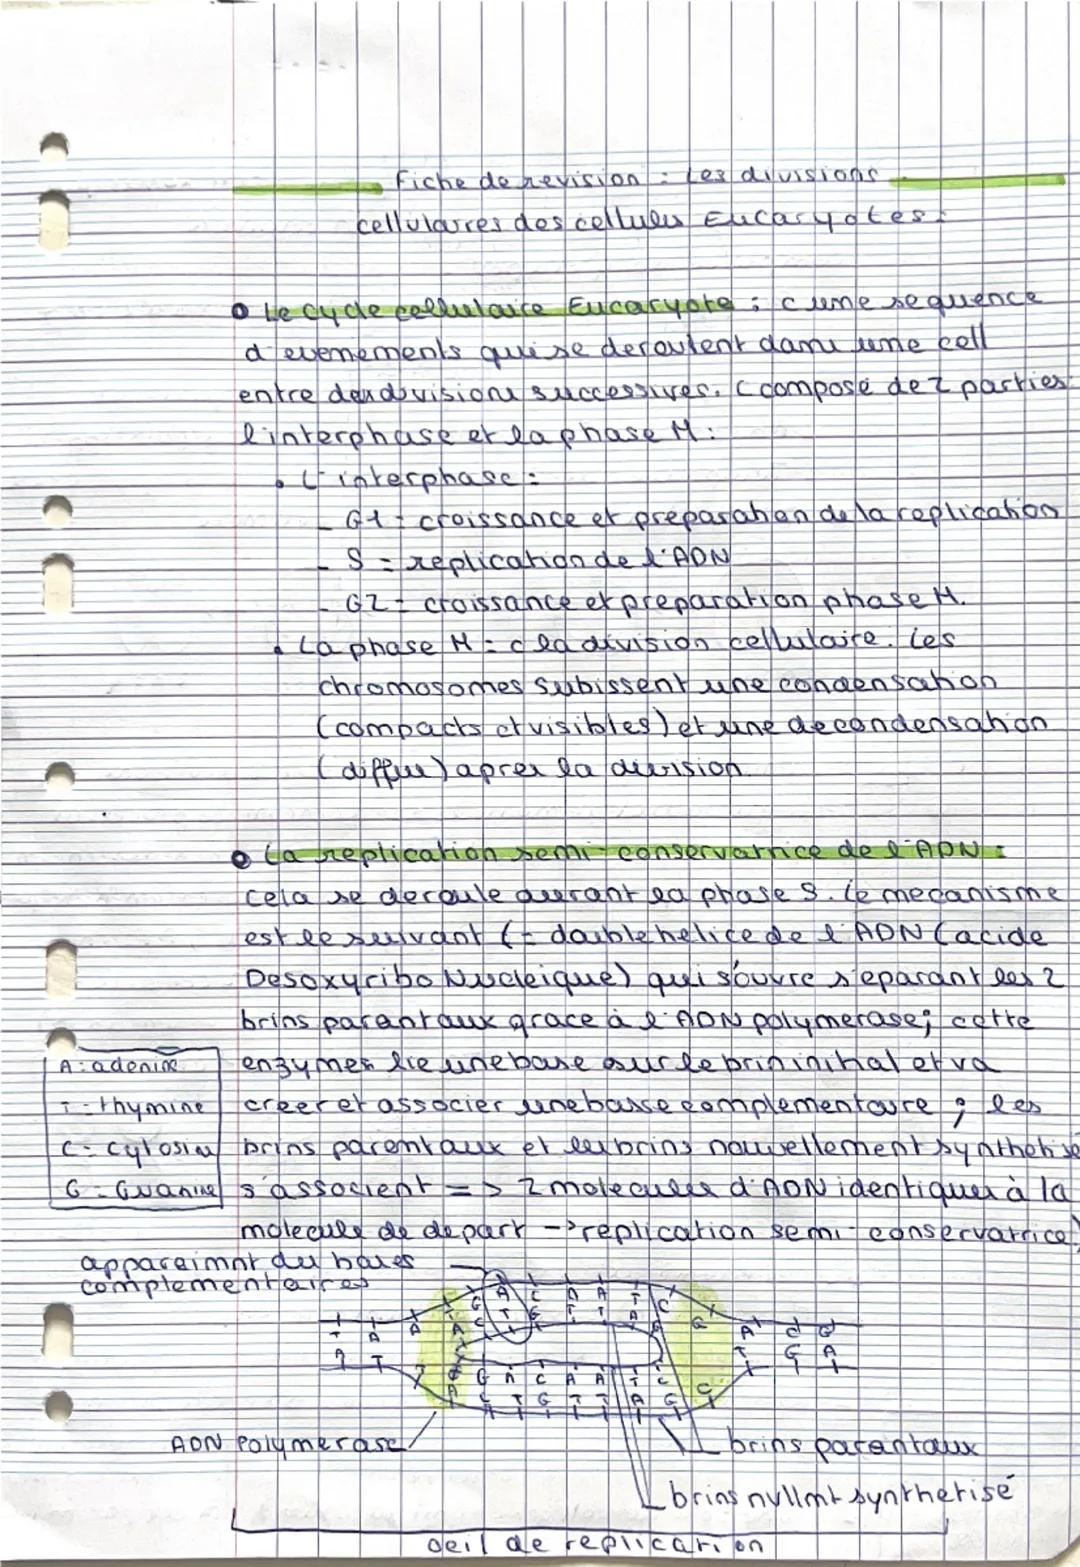 Fiche de revision : Les divisions
cellulaires des cellules Eucaryotes :
Le cycle cellulaire Eucaryote : c une sequence
d'evenements qui se deroulent dans une cell
entre des divisions successives. C composé de 2 parties
l'interphase et la phase M :
L'interphase :
- G1 = croissance et preparation de la replication
- S = replication de l'ADN
- G2 = croissance et preparation phase M.
La phase M = c la division cellulaire. Les
chromosomes subissent une condensation
(compacts et visibles) et une decondensation
(diffus) apres la division
La replication semi-conservatrice de l'ADN :
cela se deroule durant la phase S. Le mecanisme
est le suivant (= double helice de l'ADN (acide
Desoxyribo Nucleique) qui s'ouvre s'eparant les 2
brins parentaux grace à l'ADN polymerase ; cette
enzymes lie une base sur le brin initial et va
creer et associer une basse complementaire ; les
brins parentaux et les brins nouvellement synthetisé
s'associent => 2 molecules d'ADN identiques à la
molecule de depart -> replication semi-conservatrice)
A : adenine
T = thymine
C = Cytosine
G = Guanine
appareimnt des bases
complementaires
G A C A A T C
A C T G T T A G G
T A A A C G
A T T G A
T G A C A A T C
A C T G T T A G C
ADN Polymerase
brins parentaux
brins nvllmt synthetisé
oeil de replication